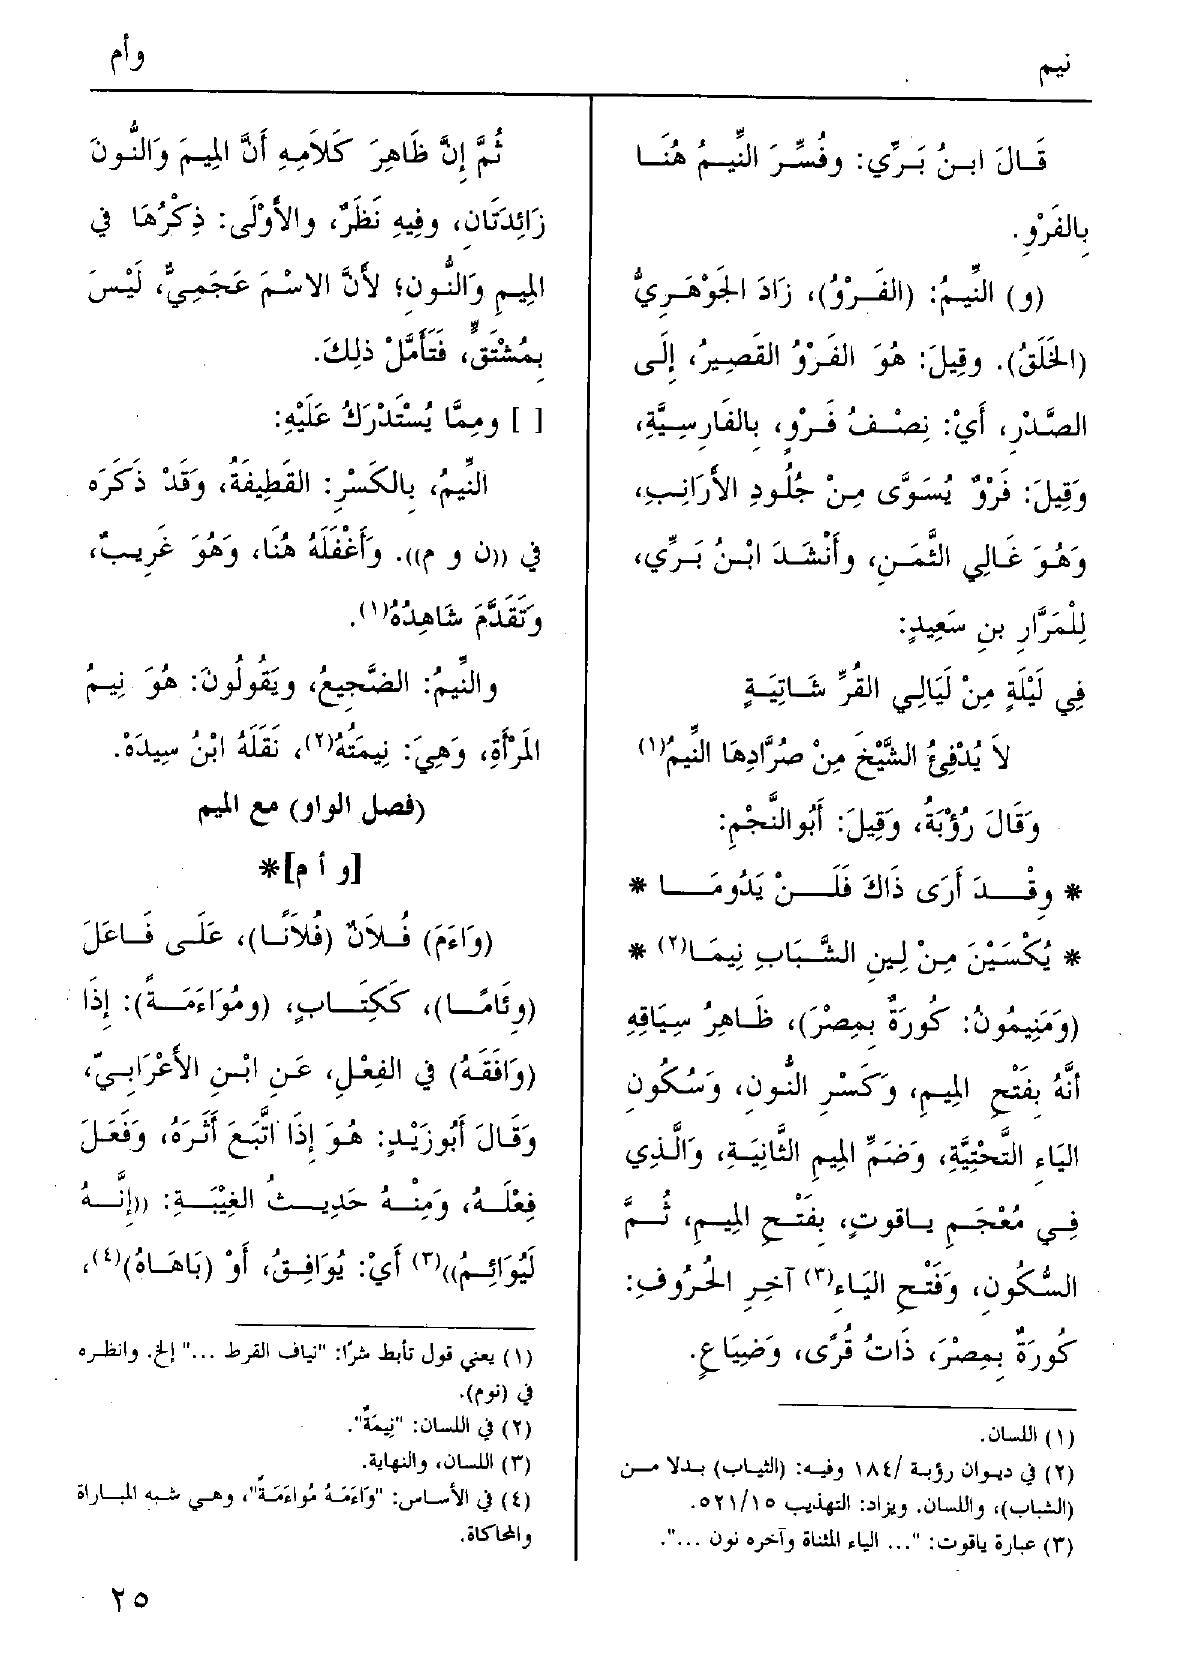 نيم
وأم
قَالَ ابنُ بَرِّي: وفُسِّرَ النِّيمُ هُنَا
بِالفَرْوِ.
(و) النِّيمُ: (الفَرْوُ)، زَادَ الجَوْهَرِيُّ
(الخَلَقُ). وقِيلَ: هُوَ الفَرْوُ القَصِيرُ، إِلَى
الصَّدْرِ، أَيْ: نِصْفُ فَرْوٍ، بِالفَارِسِيَّةِ،
وَقِيلَ: فَرْوٌ يُسَوَّى مِنْ جُلُودِ الأَرَانِبِ،
وَهُوَ غَالِي الثَّمَنِ، وأَنْشَدَ ابْنُ بَرِّي،
لِلْمَرَّارِ بنِ سَعِيدٍ:
فِي لَيْلَةٍ مِنْ لَيَالِي القُرِّ شَاتِيَةٍ
لاَ يُدْفِئُ الشَّيْخَ مِنْ صُرَّادِهَا النِّيمُ(١)
وَقَالَ رُؤْبَةُ، وَقِيلَ: أَبُوالنَّجْمِ:
* وقْدَ أَرَى ذَاكَ فَلَنْ يَدُومَا *
* يُكْسَيْنَ مِنْ لِينِ الشَّبَابِ نِيمَا(٢) *
(وَمَنِيمُونُ: كُورَةٌ بِمِصْرَ)، ظَاهِرُ سِيَاقِهِ
أنَّهُ بِفَتْحِ المِيمِ، وَكَسْرِ النُّونِ، وَسُكُونِ
اليَاءِ التَّحْتِيَّةِ، وَضَمِّ المِيمِ الثَّانِيَةِ، وَالَّذِي
فِي مُعْجَمِ يَاقوتٍ، بِفَتْحِ المِيمِ، ثُمَّ
السُّكُونِ، وَفَتْحِ اليَاءِ(٣) آخِرِ الحُرُوفِ:
كُورَةٌ بِمِصْرَ، ذَاتُ قُرًى، وَضِيَاعٍ.
(١) اللسان.
(٢) في ديوان رؤبة /١٨٤ وفيه: (الثياب) بدلا من
(الشباب)، واللسان. ويزاد: التهذيب ٥٢١/١٥.
(٣) عبارة ياقوت: "... الياء المثناة وآخره نون ...".
ثُمَّ إِنَّ ظَاهِرَ كَلاَمِهِ أَنَّ المِيمَ وَالنُّونَ
زَائِدَتَانِ، وفِيهِ نَظَرٌ، والأَوْلَى: ذِكْرُهَا فِي
المِيمِ وَالنُّونِ؛ لأَنَّ الاسْمَ عَجَمِيٌّ، لَيْسَ
بِمُشْتَقٍّ، فَتَأَمَّلْ ذلِكَ.
[ ] ومِمَّا يُسْتَدْرَكُ عَلَيْهِ:
النِّيمُ، بِالكَسْرِ: القَطِيفَةُ، وَقَدْ ذَكَرَه
في ((ن و م)). وَأَغْفَلَهُ هُنَا، وَهُوَ غَرِيبٌ،
وَتَقَدَّمَ شَاهِدُهُ(١).
والنِّيمُ: الضَّجِيعُ، ويَقُولُونَ: هُوَ نِيمُ
المَرْأَةِ، وَهِيَ: نِيمَتُهُ(٢)، نَقَلَهُ ابْنُ سِيدَهْ.
(فصل الواو) مع الميم
[و أ م]*
(وَاءَمَ) فُلاَنٌ (فُلاَنًا)، عَلَى فَاعَلَ
(وِئَامًا)، كَكِتَابٍ، (ومُوَاءَمَةً): إِذَا
(وَافَقَهُ) فِي الفِعْلِ، عَنِ ابْنِ الأَعْرَابِيِّ،
وَقَالَ أَبُوزَيْدٍ: هُوَ إِذَا اتَّبَعَ أَثَرَهُ، وَفَعَلَ
فِعْلَهُ، وَمِنْهُ حَدِيثُ الغِيْبَةِ: ((إِنَّهُ
لَيُوَائِمُ))(٣) أَيْ: يُوَافِقُ، أَوْ (بَاهَاهُ)(٤)،
(١) يعني قول تأبط شرًا: "نياف القرط ..." إلخ. وانظره
في (نوم).
(٢) في اللسان: "نِيمَةٌ".
(٣) اللسان، والنهاية.
(٤) في الأساس: "وَاءَمَهُ مُواءَمَةً"، وهي شبه المباراة
والمحاكاة.
٢٥